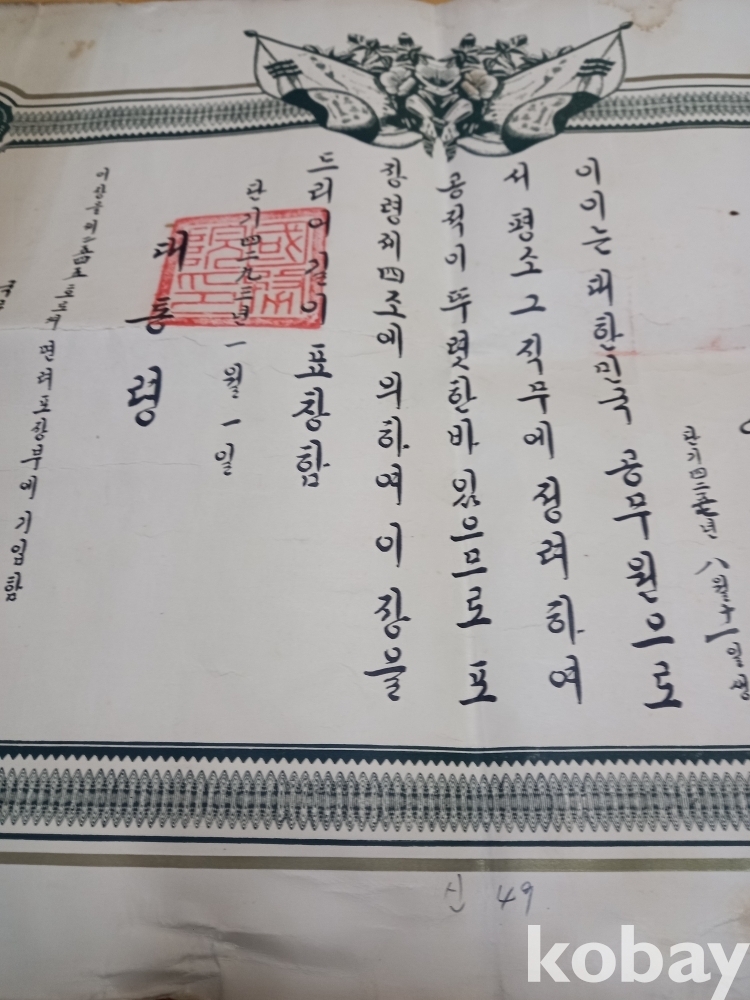 단기四二五年 八월十一일생
이이는 대한민국 공무원으로
서 평소 그 직무에 정려하여
공적이 뚜렷한바 있으므로 포
창령제四조에 의하여 이 장을
드리어 길이 표창함
단기四二九三년 一월 一일
대통령
이 증을 제 호로서 대표창부에 기입함
신 49
kobay